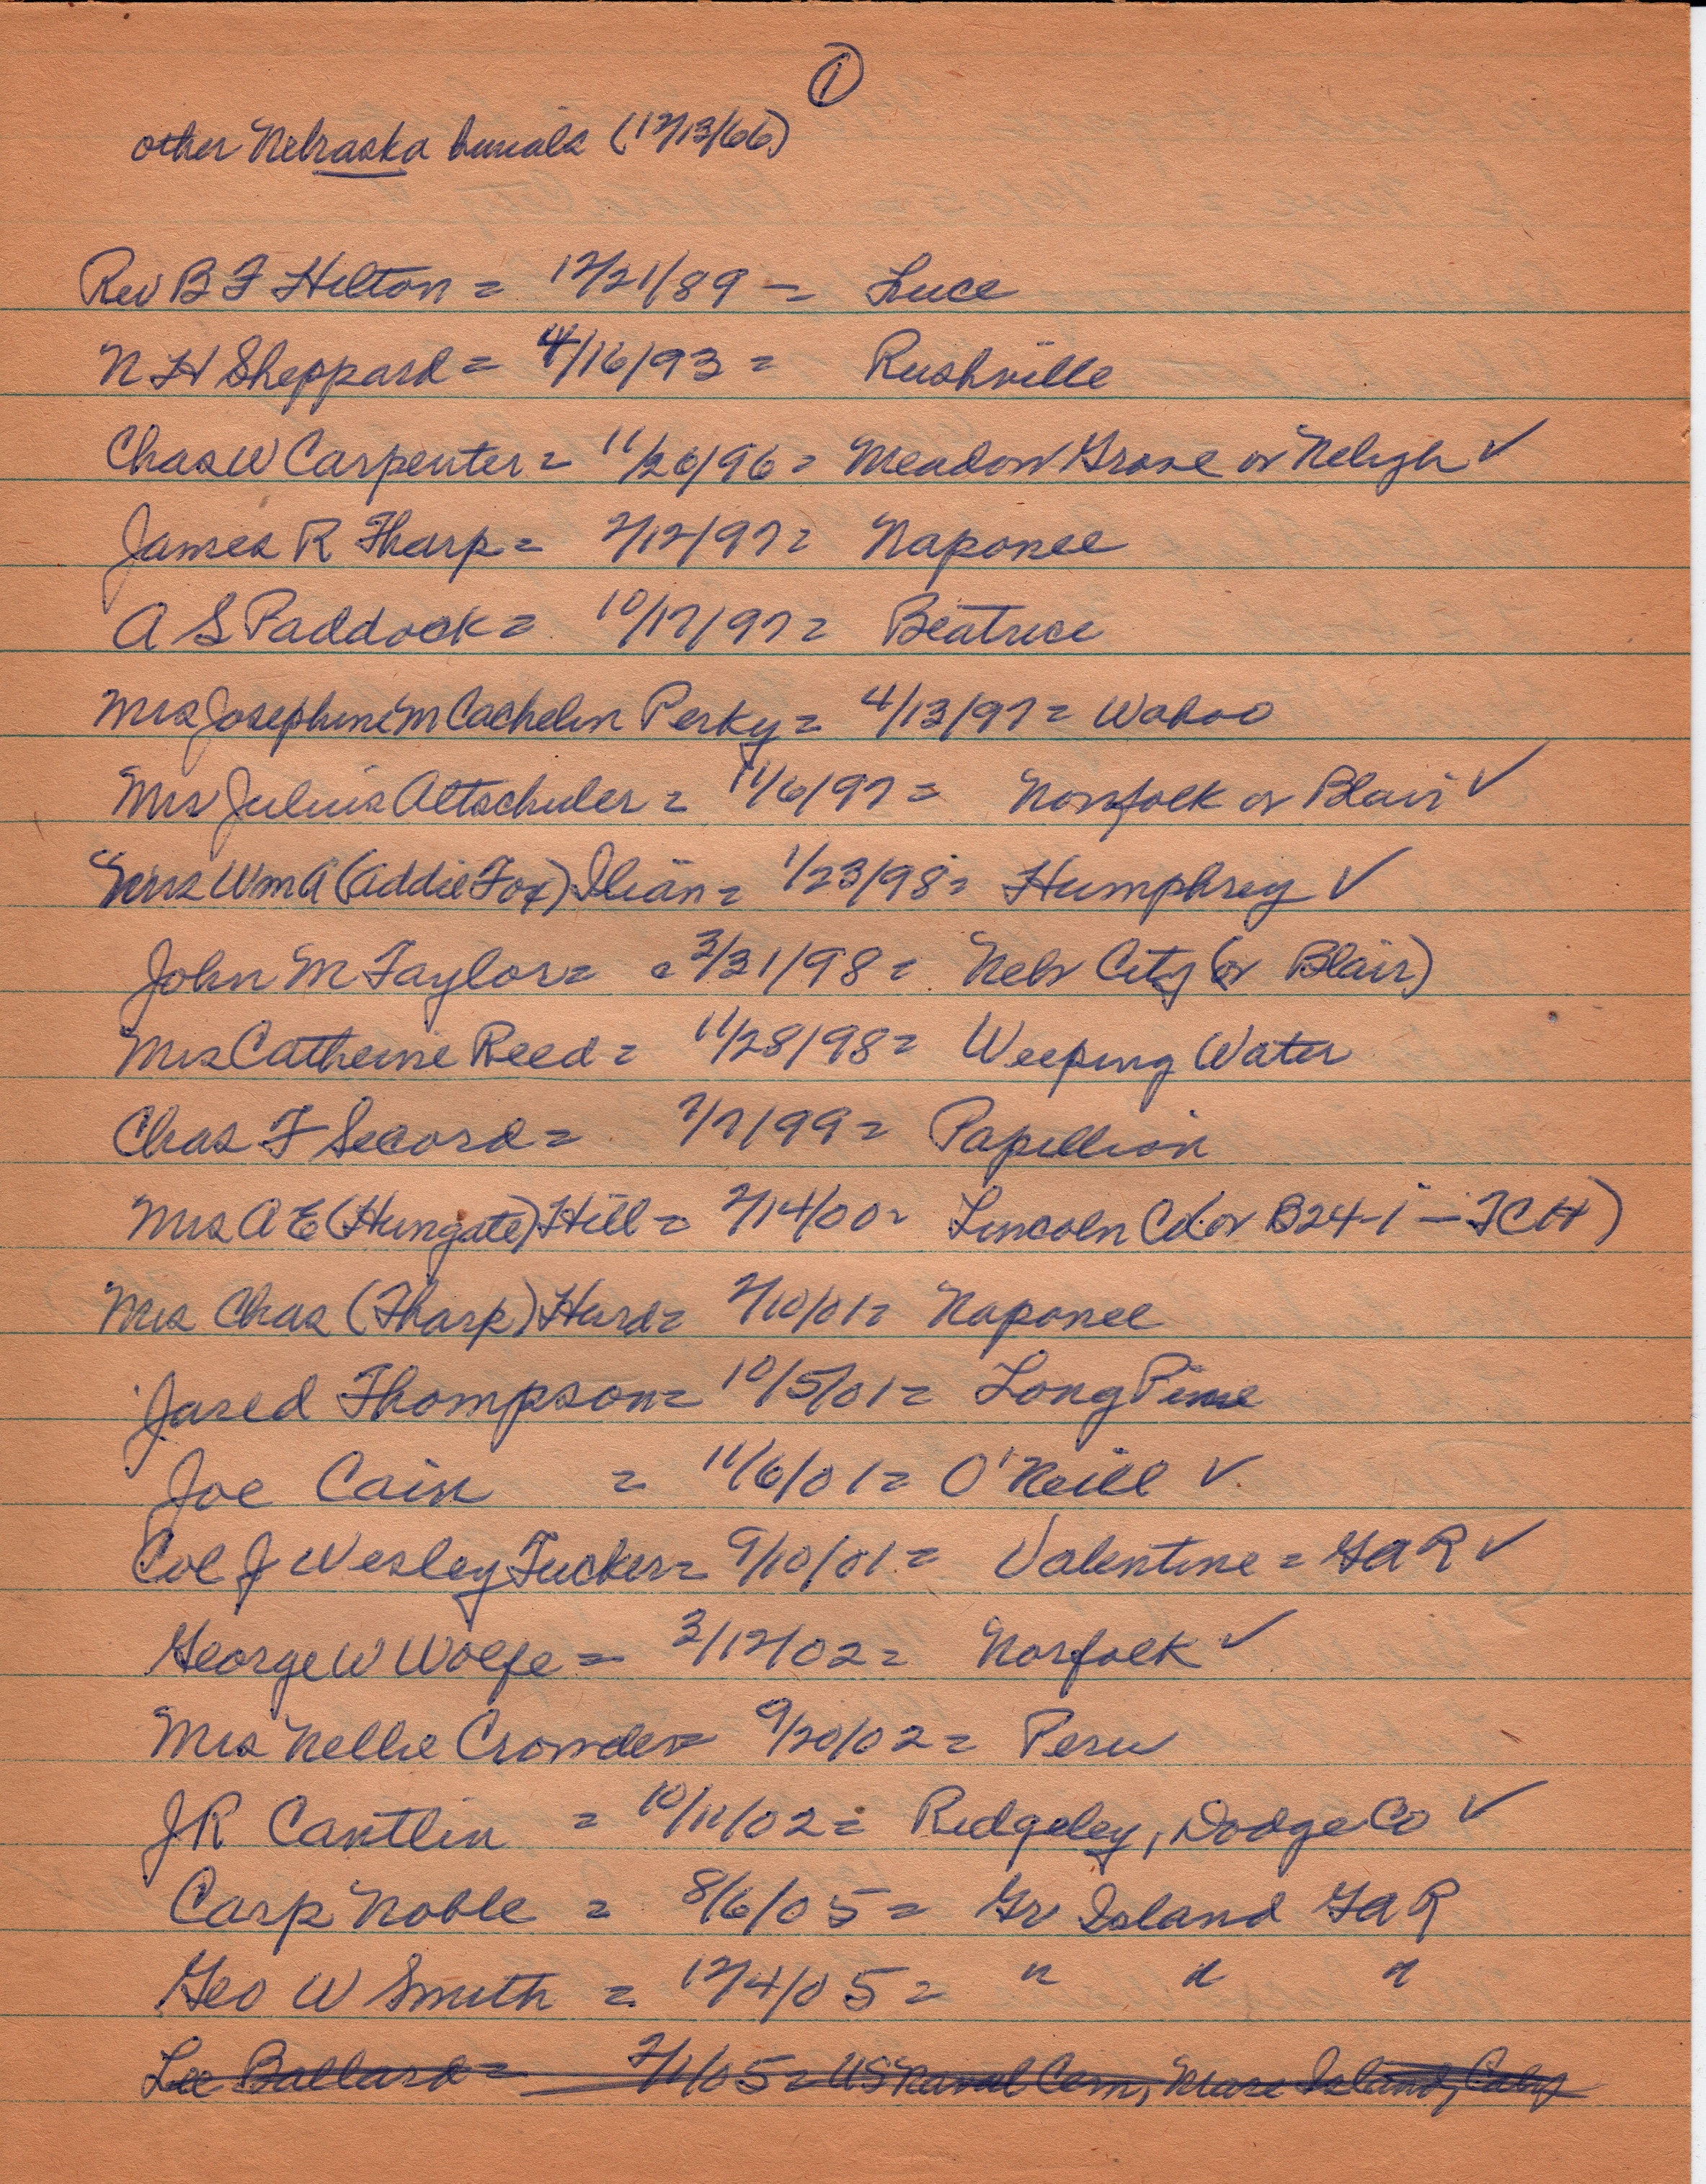 1
other Nebraska burials (12/13/66)
Rev B F Hilton = 12/21/89 = Luce
N H Sheppard = 4/16/93 = Rushville
Chas W Carpenter = 11/26/96 = Meadow Grove or Neligh ✓
James R Tharp = 2/12/97 = Naponee
A S Paddock = 10/17/97 = Beatrice
Mrs Josephine McCachelin Perky = 4/13/97 = Wahoo
Mrs Julius Altschuler = 11/6/97 = Norfolk or Blair ✓
Mrs Wm A (Addie Fox) Ilian = 1/23/98 = Humphrey ✓
John M Taylor = = 3/31/98 = Nebr City (or Blair)
Mrs Catherine Reed = 11/28/98 = Weeping Water
Chas F Secord = 7/7/99 = Papillion
Mrs A E (Hungate) Hill = 2/14/00 = Lincoln C (or B24-1 - TCH)
Mrs Chas (Tharp) Hurd = 2/10/01 = Naponee
Jared Thompson = 10/5/01 = Long Pine
Joe Cain = 11/6/01 = O'Neill ✓
Col J Wesley Tucker = 9/10/01 = Valentine = GAR ✓
George W Wolfe = 3/12/02 = Norfolk ✓
Mrs Nellie Crowder = 9/20/02 = Peru
J R Cantlin = 10/11/02 = Ridgeley, Dodge Co ✓
Carp Noble = 8/6/05 = Gr Island GAR
Geo W Smith = 12/4/05 = " " "
Lee Ballard = 2/1/05 = US Naval Cem, Mare Island, Calif